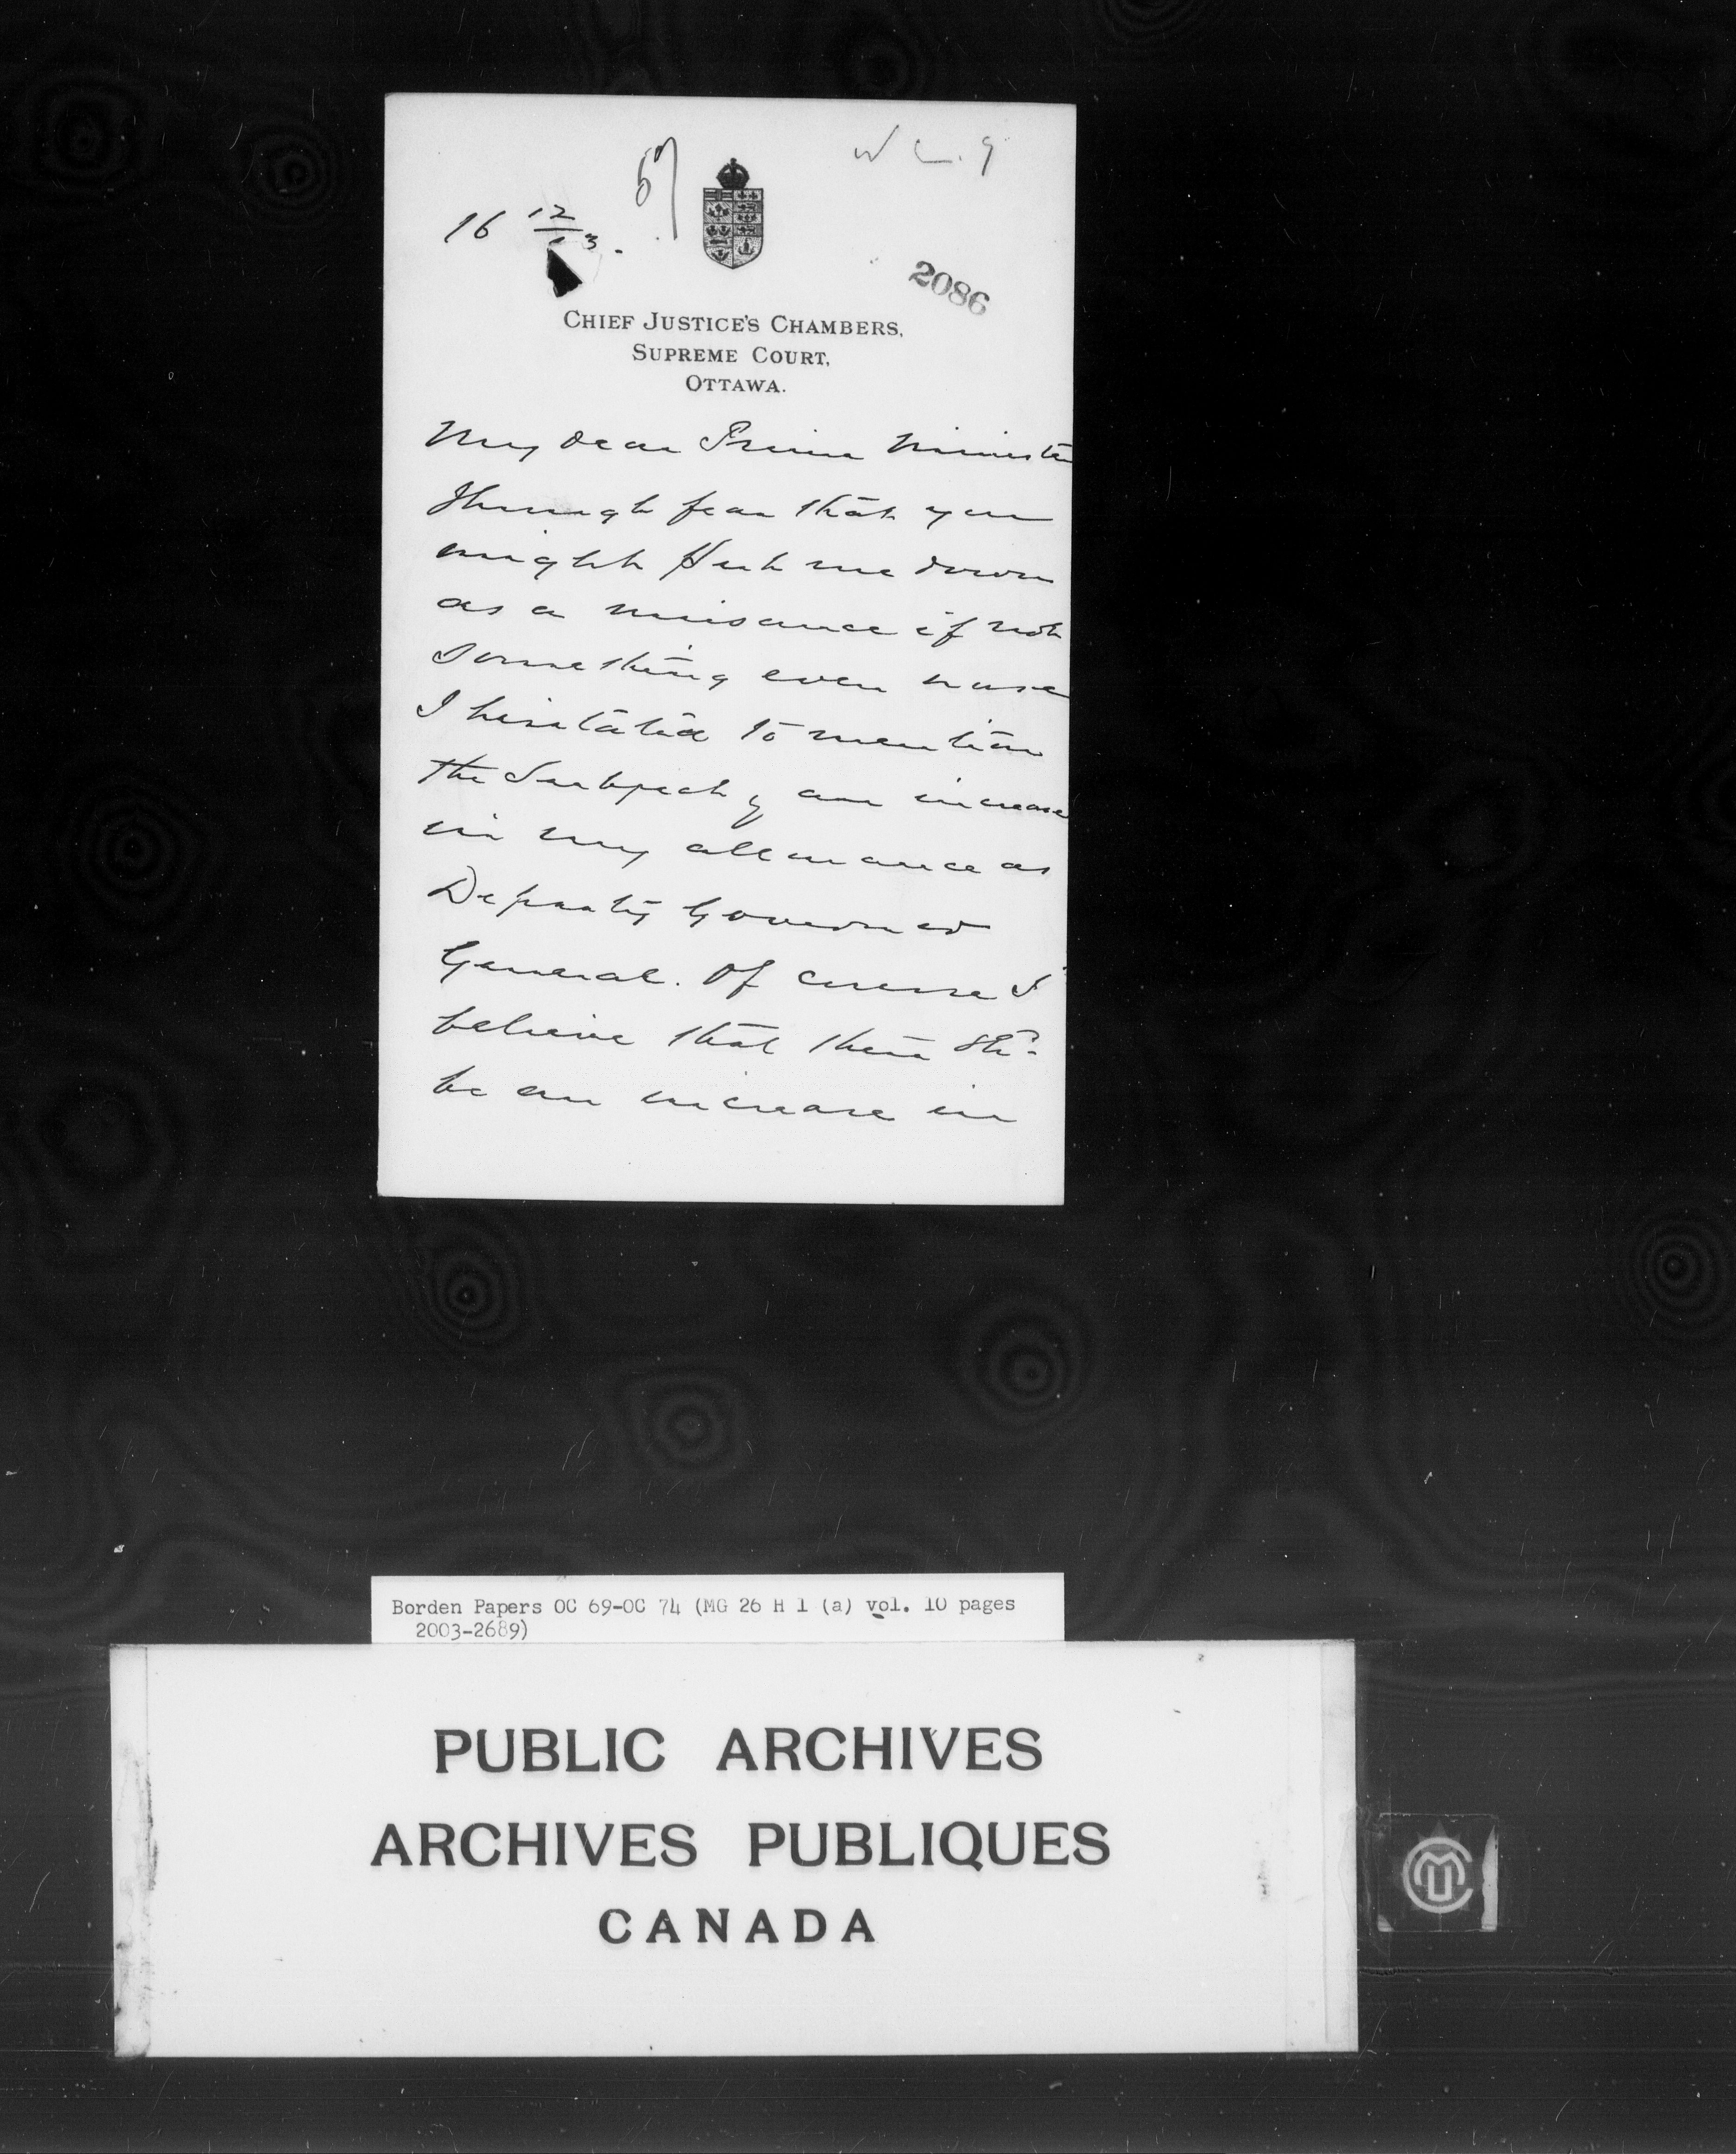 57
16 12/13.
2086
CHIEF JUSTICE'S CHAMBERS,
SUPREME COURT,
OTTAWA.
My dear Prime Minister
Through fear that you
might put me down
as a nuisance if not
something even worse
I hesitated to mention
the subject of an increase
in my allowance as
Deputy Governor
General. Of course I
believe that there shd.
be an increase in
Borden Papers OC 69-OC 74 (MG 26 H 1 (a) vol. 10 pages
2003-2689)
PUBLIC ARCHIVES
ARCHIVES PUBLIQUES
CANADA